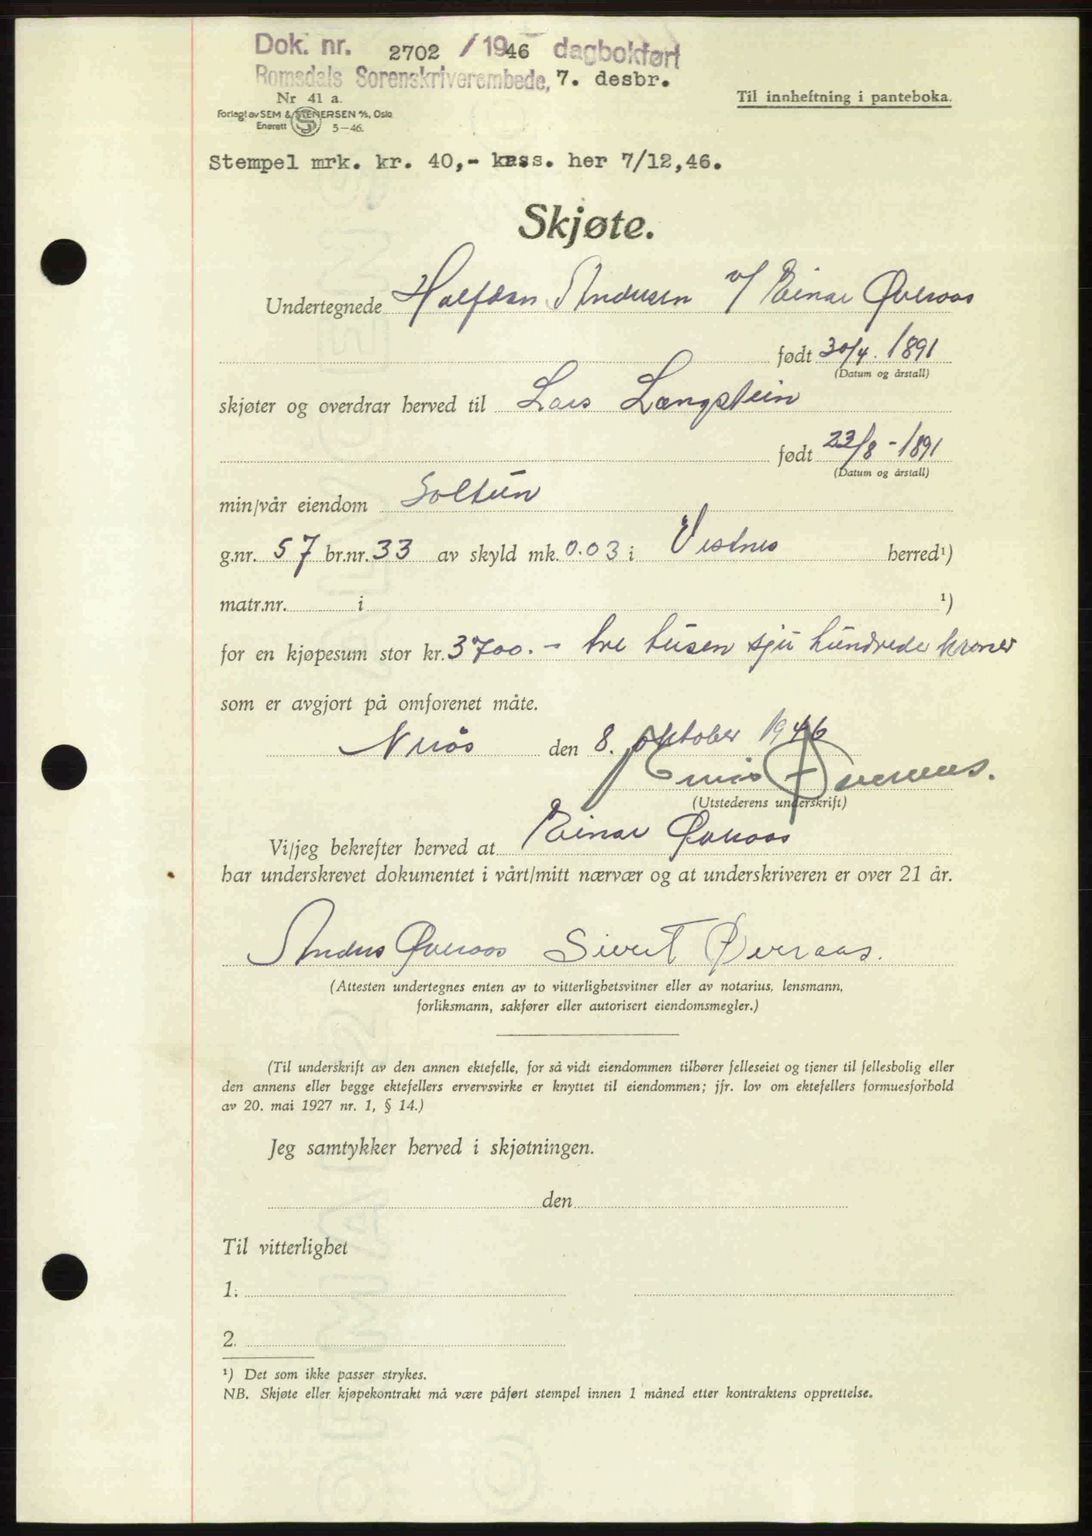 Dok. nr. 2702 / 1946 dagbokført
Romsdals Sorenskriverembede, 7. desbr.
Nr 41 a.
Forlagt av SEM & STENERSEN A/S, Oslo
Enerett 5-46.
Til innheftning i panteboka.
Stempel mrk. kr. 40,- kass. her 7/12,46.
Skjøte.
Undertegnede Halfdan Andersen v/ Einar Øveraas
født 30/4. 1891
(Datum og årstall)
skjøter og overdrar herved til Lars Langstein
født 23/8 - 1891
(Datum og årstall)
min/vår eiendom Soltun
g.nr. 57 br.nr. 33 av skyld mk. 0.03 i Vestnes herred¹)
matr.nr. i ¹)
for en kjøpesum stor kr. 3700.- tre tusen sju hundrede kroner
som er avgjort på omforenet måte.
den 8. oktober 1946
Øveraas.
(Utstederens underskrift)
Vi/jeg bekrefter herved at Einar Øveraas
har underskrevet dokumentet i vårt/mitt nærvær og at underskriveren er over 21 år.
Anders Øveraas Sivert Øveraas.
(Attesten undertegnes enten av to vitterlighetsvitner eller av notarius, lensmann,
forliksmann, sakfører eller autorisert eiendomsmegler.)
(Til underskrift av den annen ektefelle, for så vidt eiendommen tilhører felleseiet og tjener til fellesbolig eller
den annens eller begge ektefellers ervervsvirke er knyttet til eiendommen; jfr. lov om ektefellers formuesforhold
av 20. mai 1927 nr. 1, § 14.)
Jeg samtykker herved i skjøtningen.
den
Til vitterlighet
1.
2.
¹) Det som ikke passer strykes.
NB. Skjøte eller kjøpekontrakt må være påført stempel innen 1 måned etter kontraktens opprettelse.